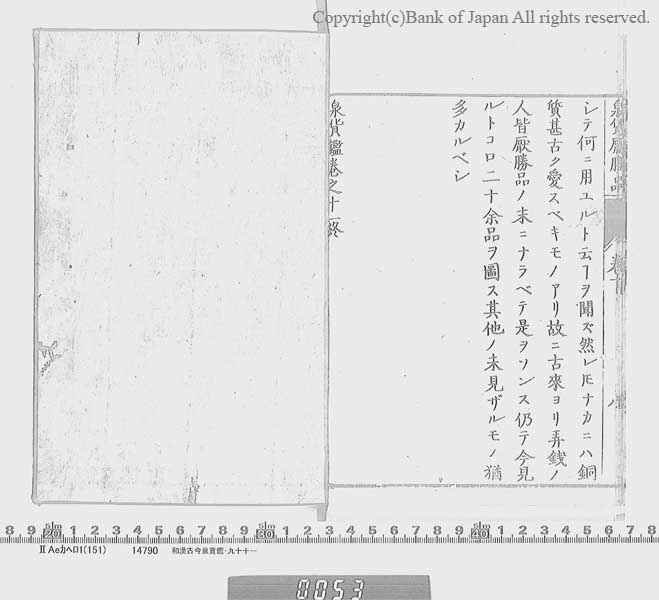 Copyright(c)Bank of Japan All rights reserved.
シテ何ニ用ユルト云ヿヲ聞ズ然レ𪜈ナカニハ銅
質甚古ク愛スベキモノアリ故ニ古來ヨリ弄銭ノ
人皆厭勝品ノ末ニナラベテ是ヲソンス仍テ今見
ルトコロ二十余品ヲ圖ス其他ノ未見ザルモノ猶
多カルベシ
泉貨鑑巻之十一終
8 9 20 1 2 3 4 5 6 7 8 9 30 1 2 3 4 5 6 7 8 9 40 1 2 3 4 5 6 7 8
Ⅱ Aeカへロ1(151) 14790 和漢古今泉貨鑑・九十十一
0053